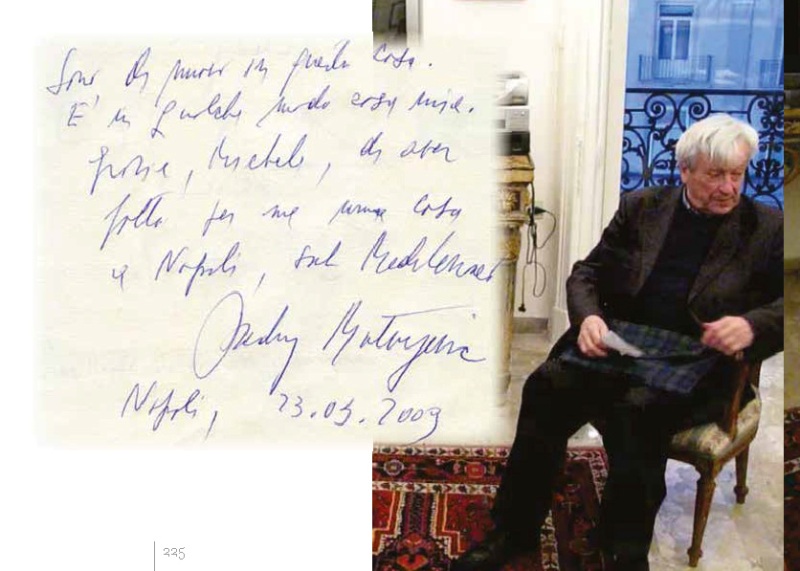 Sono di nuovo in questa casa.
E' in qualche modo casa mia.
Grazie, Michele, di aver
fatto per me una casa
a Napoli, sul Mediterraneo
Predrag Matvejević
Napoli, 23.03.2009
225